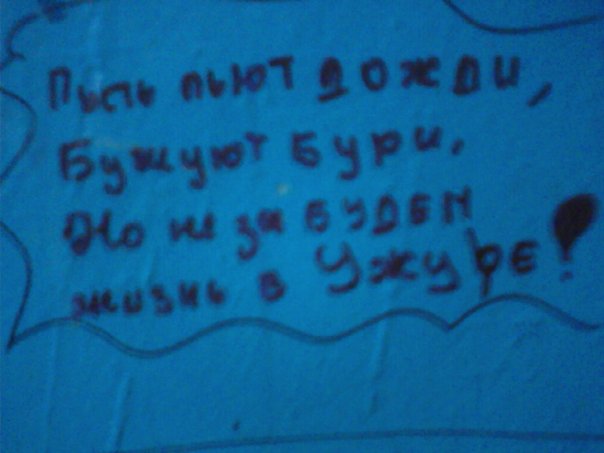 Пусть пьют дожди,
Бужуют бури,
Но не за будем
жизнь в Ужуре!